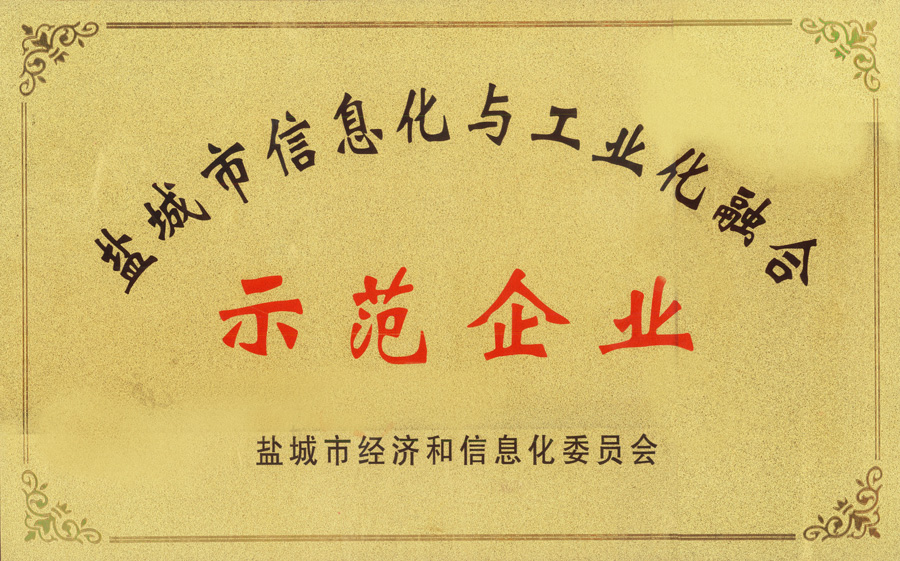 盐城市信息化与工业化融合
示范企业
盐城市经济和信息化委员会